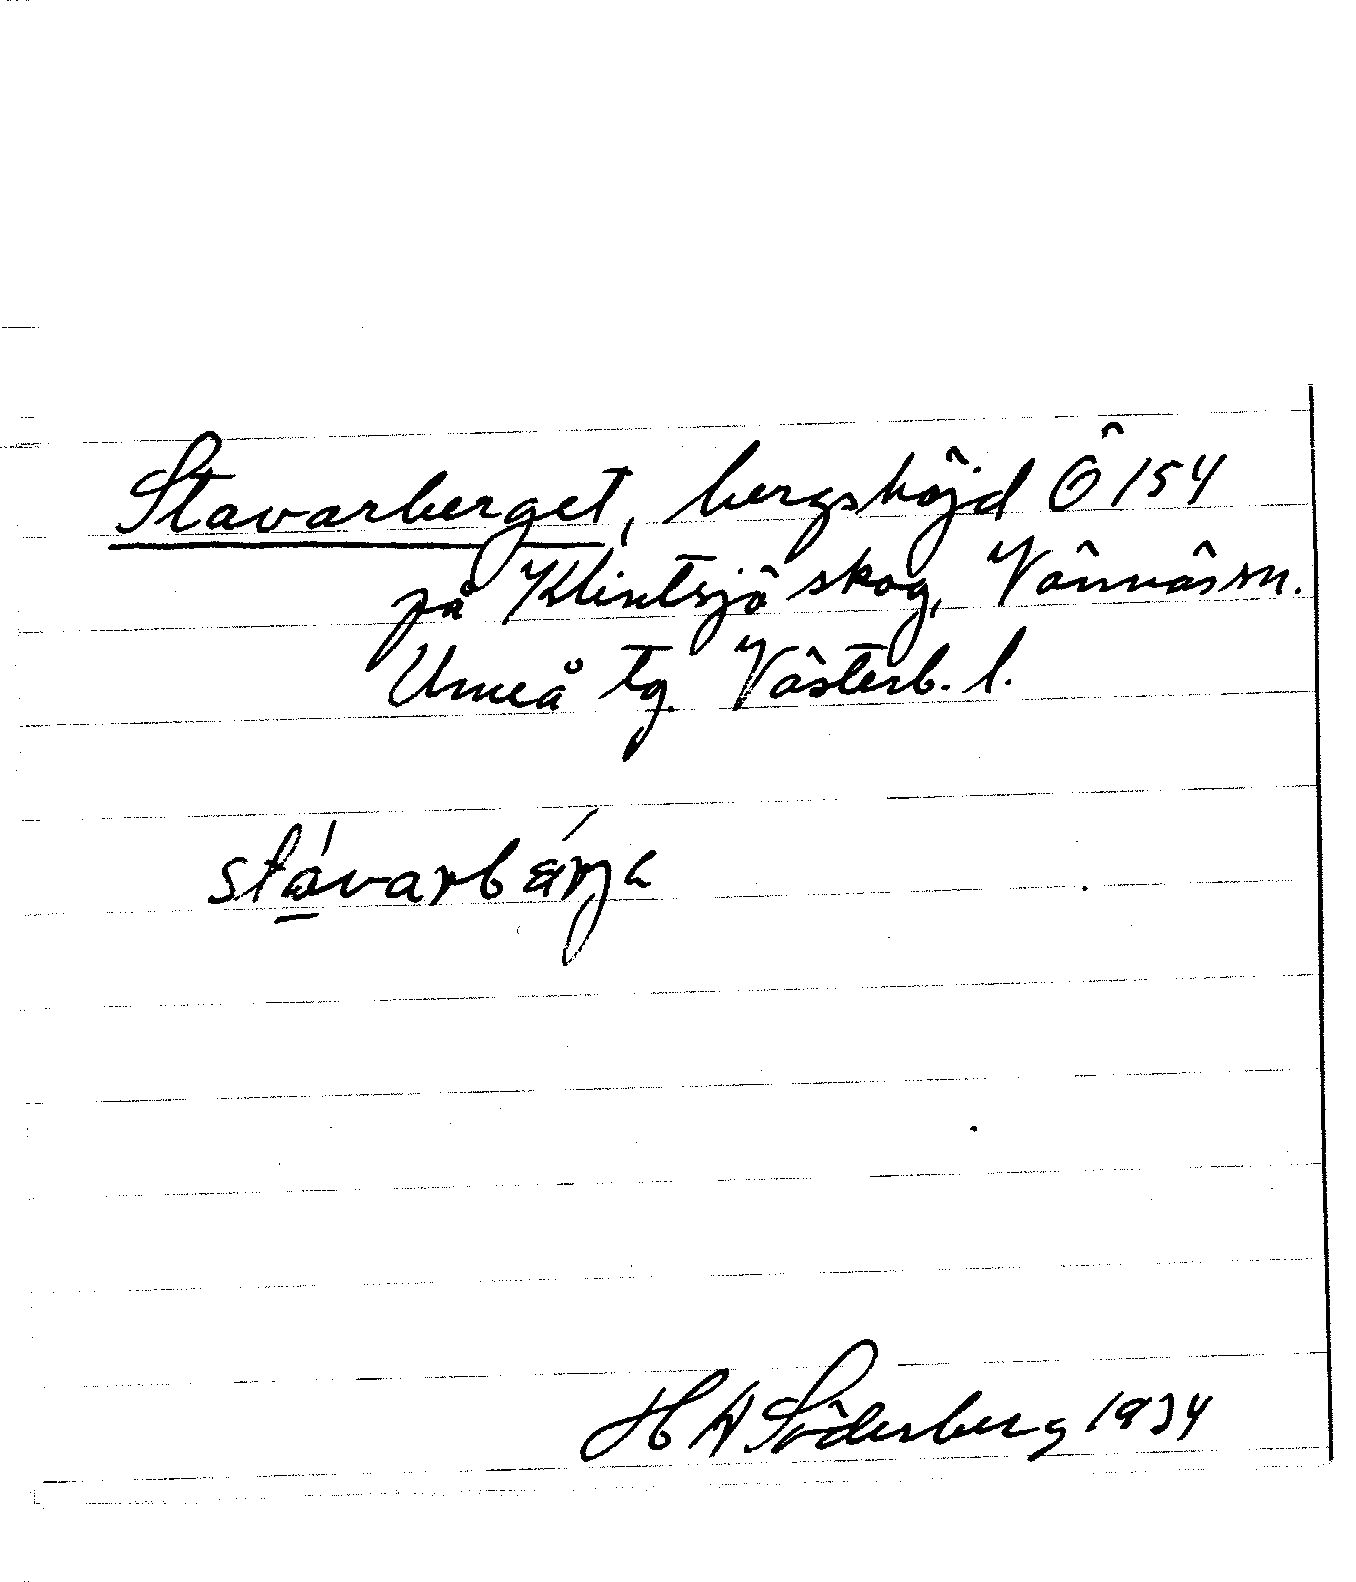 Stavarberget, bergshöjd Ö 154
på Klintsjö skog, Vännäs sn.
Umeå tg. Västerb. l.
stávarbárja
H A Söderberg 1934